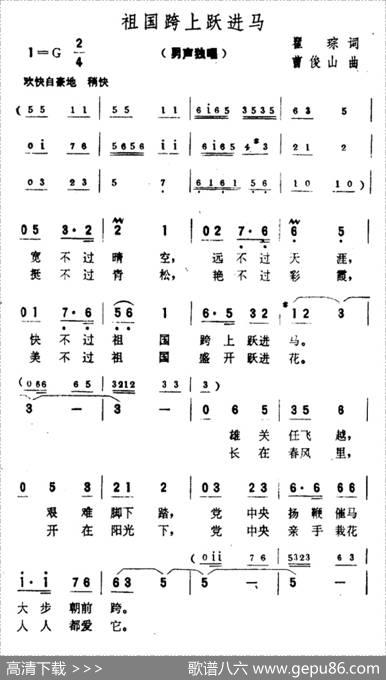 祖国跨上跃进马
1=G 2/4
(男声独唱)
瞿琮 词
曹俊山 曲
欢快自豪地 稍快
(55 11 | 55 11 | 6i65 3535 | 63 5
0i 76 | 5656 ii | 6i65 4#3 | 21 2
03 23 | 5 7 | 6161 56 | 10 10)
05 3·2 | 2 1 | 02 7·6 | 6 5
宽不过晴空, 远不过天涯,
挺不过青松, 艳不过彩霞,
01 7·6 | 56 1 | 6·5 32 | #12 3
快不过祖国跨上跃进马。
美不过祖国盛开跃进花。
(066 65 | 3212 33 | 3)
3 — | 3 — | 0 6 5 | 35 6
雄关任飞越,
长在春风里,
0 5 3 | 21 2 | 03 23 | 6·6 66
艰难脚下踏, 党中央扬鞭催马
开在阳光下, 党中央亲手栽花
(0ii 76 | 5323 63
i·i 76 | 63 5 | 5 — | 5 —
大步朝前跨。
人人都爱它。
高清下载 >>>
歌谱八六 www.gepu86.com